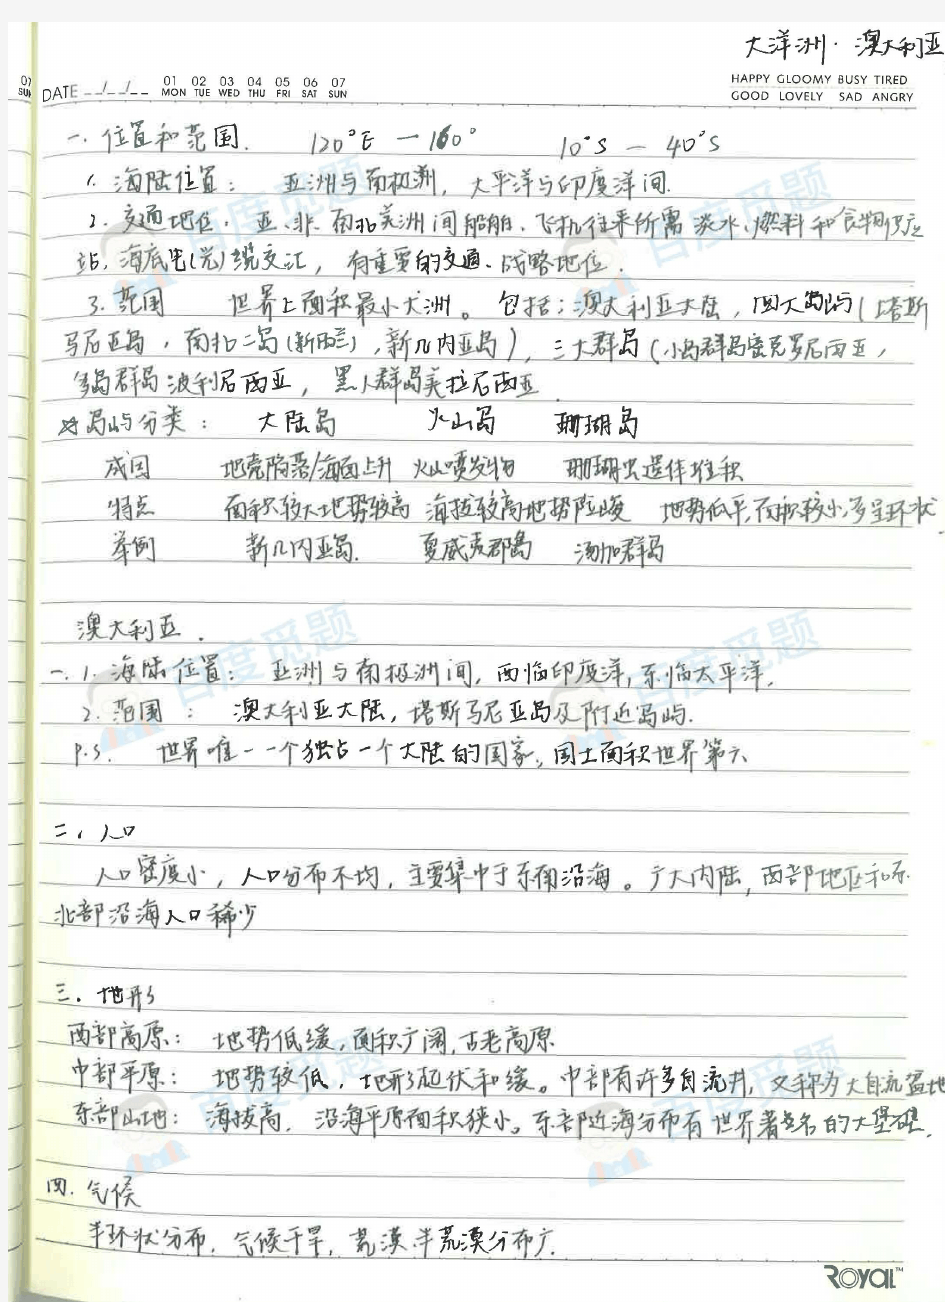 大洋洲·澳大利亚
DATE __/__/__ 01 MON 02 TUE 03 WED 04 THU 05 FRI 06 SAT 07 SUN
HAPPY GLOOMY BUSY TIRED
GOOD LOVELY SAD ANGRY
一.位置和范围. 120°E — 160° 10°S — 40°S
1.海陆位置: 亚洲与南极洲,太平洋与印度洋间.
2.交通地位. 亚、非、南北美洲间船舶、飞机往来所需淡水、燃料和食物供应
站,海底电(光)缆交汇,有重要的交通、战略地位.
3.范围 世界上面积最小大洲。包括:澳大利亚大陆,四大岛屿(塔斯
马尼亚岛,南北二岛(新西兰),新几内亚岛),三大群岛(小岛群岛密克罗尼西亚,
多岛群岛波利尼西亚,黑人群岛美拉尼西亚.
☆岛屿分类: 大陆岛 火山岛 珊瑚岛
成因 地壳陷落/海面上升 火山喷发物 珊瑚虫遗体堆积
特点 面积较大地势较高 海拔较高地势险峻 地势低平,面积较小,多呈环状.
举例 新几内亚岛. 夏威夷群岛 汤加群岛
澳大利亚.
一.1.海陆位置: 亚洲与南极洲间,西临印度洋,东临太平洋.
2.范围: 澳大利亚大陆,塔斯马尼亚岛及附近岛屿.
P.S. 世界唯一一个独占一个大陆的国家,国土面积世界第六
二、人口
人口密度小,人口分布不均,主要集中于东南沿海。广大内陆,西部地区和东
北部沿海人口稀少
三.地形
西部高原: 地势低缓,面积广阔,古老高原.
中部平原: 地势较低,地形起伏和缓。中部有许多自流井,又称为大自流盆地
东部山地: 海拔高. 沿海平原面积狭小。东部近海分布有世界著名的大堡礁.
四.气候
半环状分布,气候干旱,荒漠、半荒漠分布广.
ROYAL™
百度觅题
百度觅题
百度觅题
百度觅题
百度觅题
百度觅题